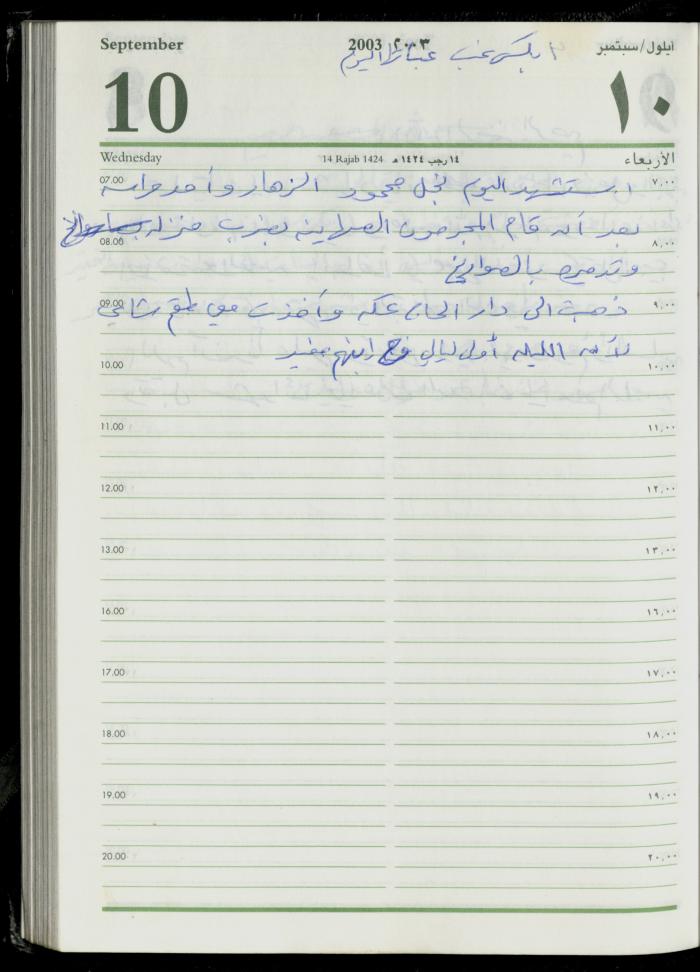 September 2003 ٢٠٠٣ أيلول/سبتمبر
10 ١٠
Wednesday 14 Rajab 1424 ١٤ رجب ١٤٢٤ هـ الأربعاء
07.00 استشهد اليوم نجل محمود الزهار وأحد حراسه ٧,٠٠
بعد أن قام المجرمون الصهاينه بضرب منزله
08.00 ٨,٠٠
وتدميره بالصواريخ
09.00 ذهبت الى دار الحاج عكه وأخذت معي طقم شاي ٩,٠٠
لأن الليله أولى ليالي فرح ابنهم مفيد
10.00 ١٠,٠٠
11.00 ١١,٠٠
12.00 ١٢,٠٠
13.00 ١٣,٠٠
16.00 ١٦,٠٠
17.00 ١٧,٠٠
18.00 ١٨,٠٠
19.00 ١٩,٠٠
20.00 ٢٠,٠٠